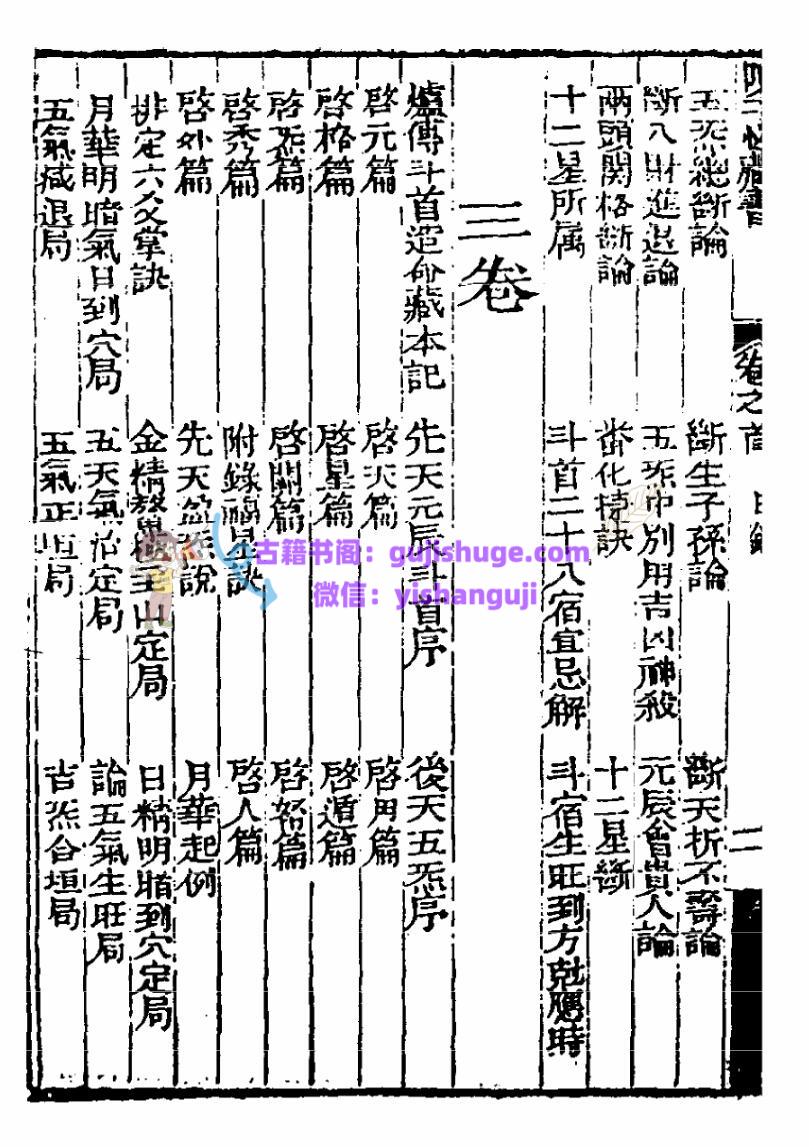 卷之首 目錄 二
五炁總斷論 斷生子孫論 斷夭折不壽論
斷入財進退論 五炁巾別用吉凶神殺 元辰會貴人論
兩頭関格斷論 畨化 訣 十二星斷
十二星所属 斗首二十八宿宜忌解 斗宿生旺到方尅應時
三卷
爐傳斗首造命藏本記 先天元辰斗首序 後天五炁序
啓元篇 啓天篇 啓用篇
啓格篇 啓星篇 啓遁篇
啓炁篇 啓関篇 啓 篇
啓秀篇 附錄福星訣 啓人篇
啓外篇 先天 說 月華起例
排定六爻掌訣 金精 山定局 日精明暗到穴定局
月華明暗氣日到穴局 五天氣 定局 論五氣生旺局
五氣咸退局 五氣正垣局 吉炁合垣局
古籍书阁：gujishuge.com
微信：yishanguji